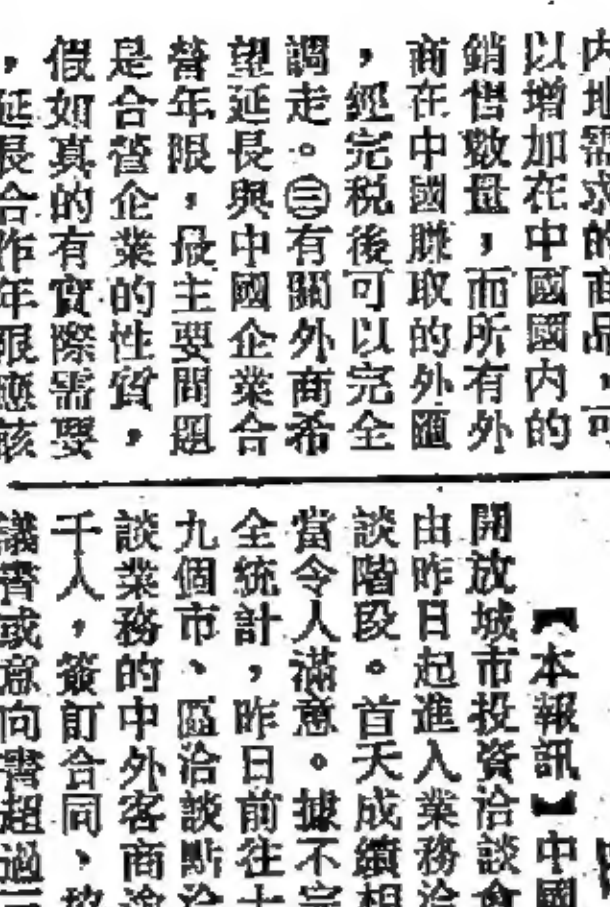 內地需求的商品，可
以增加在中國國内的
銷售數量，而所有外
商在中國賺取的外匯
，經完税後可以完全
調走。㊂有關外商希
望延長與中國企業合
營年限，最主要問題
是合營企業的性質，
假如真的有實際需要
，延長合作年限應該
【本報訊】中國
開放城市投資洽談會
由昨日起進入業務洽
談階段。首天成績相
當令人滿意。據不完
全統計，昨日前往十
九個市、區洽談點洽
談業務的中外客商逾
千人，簽訂合同、
議書或意向書超過